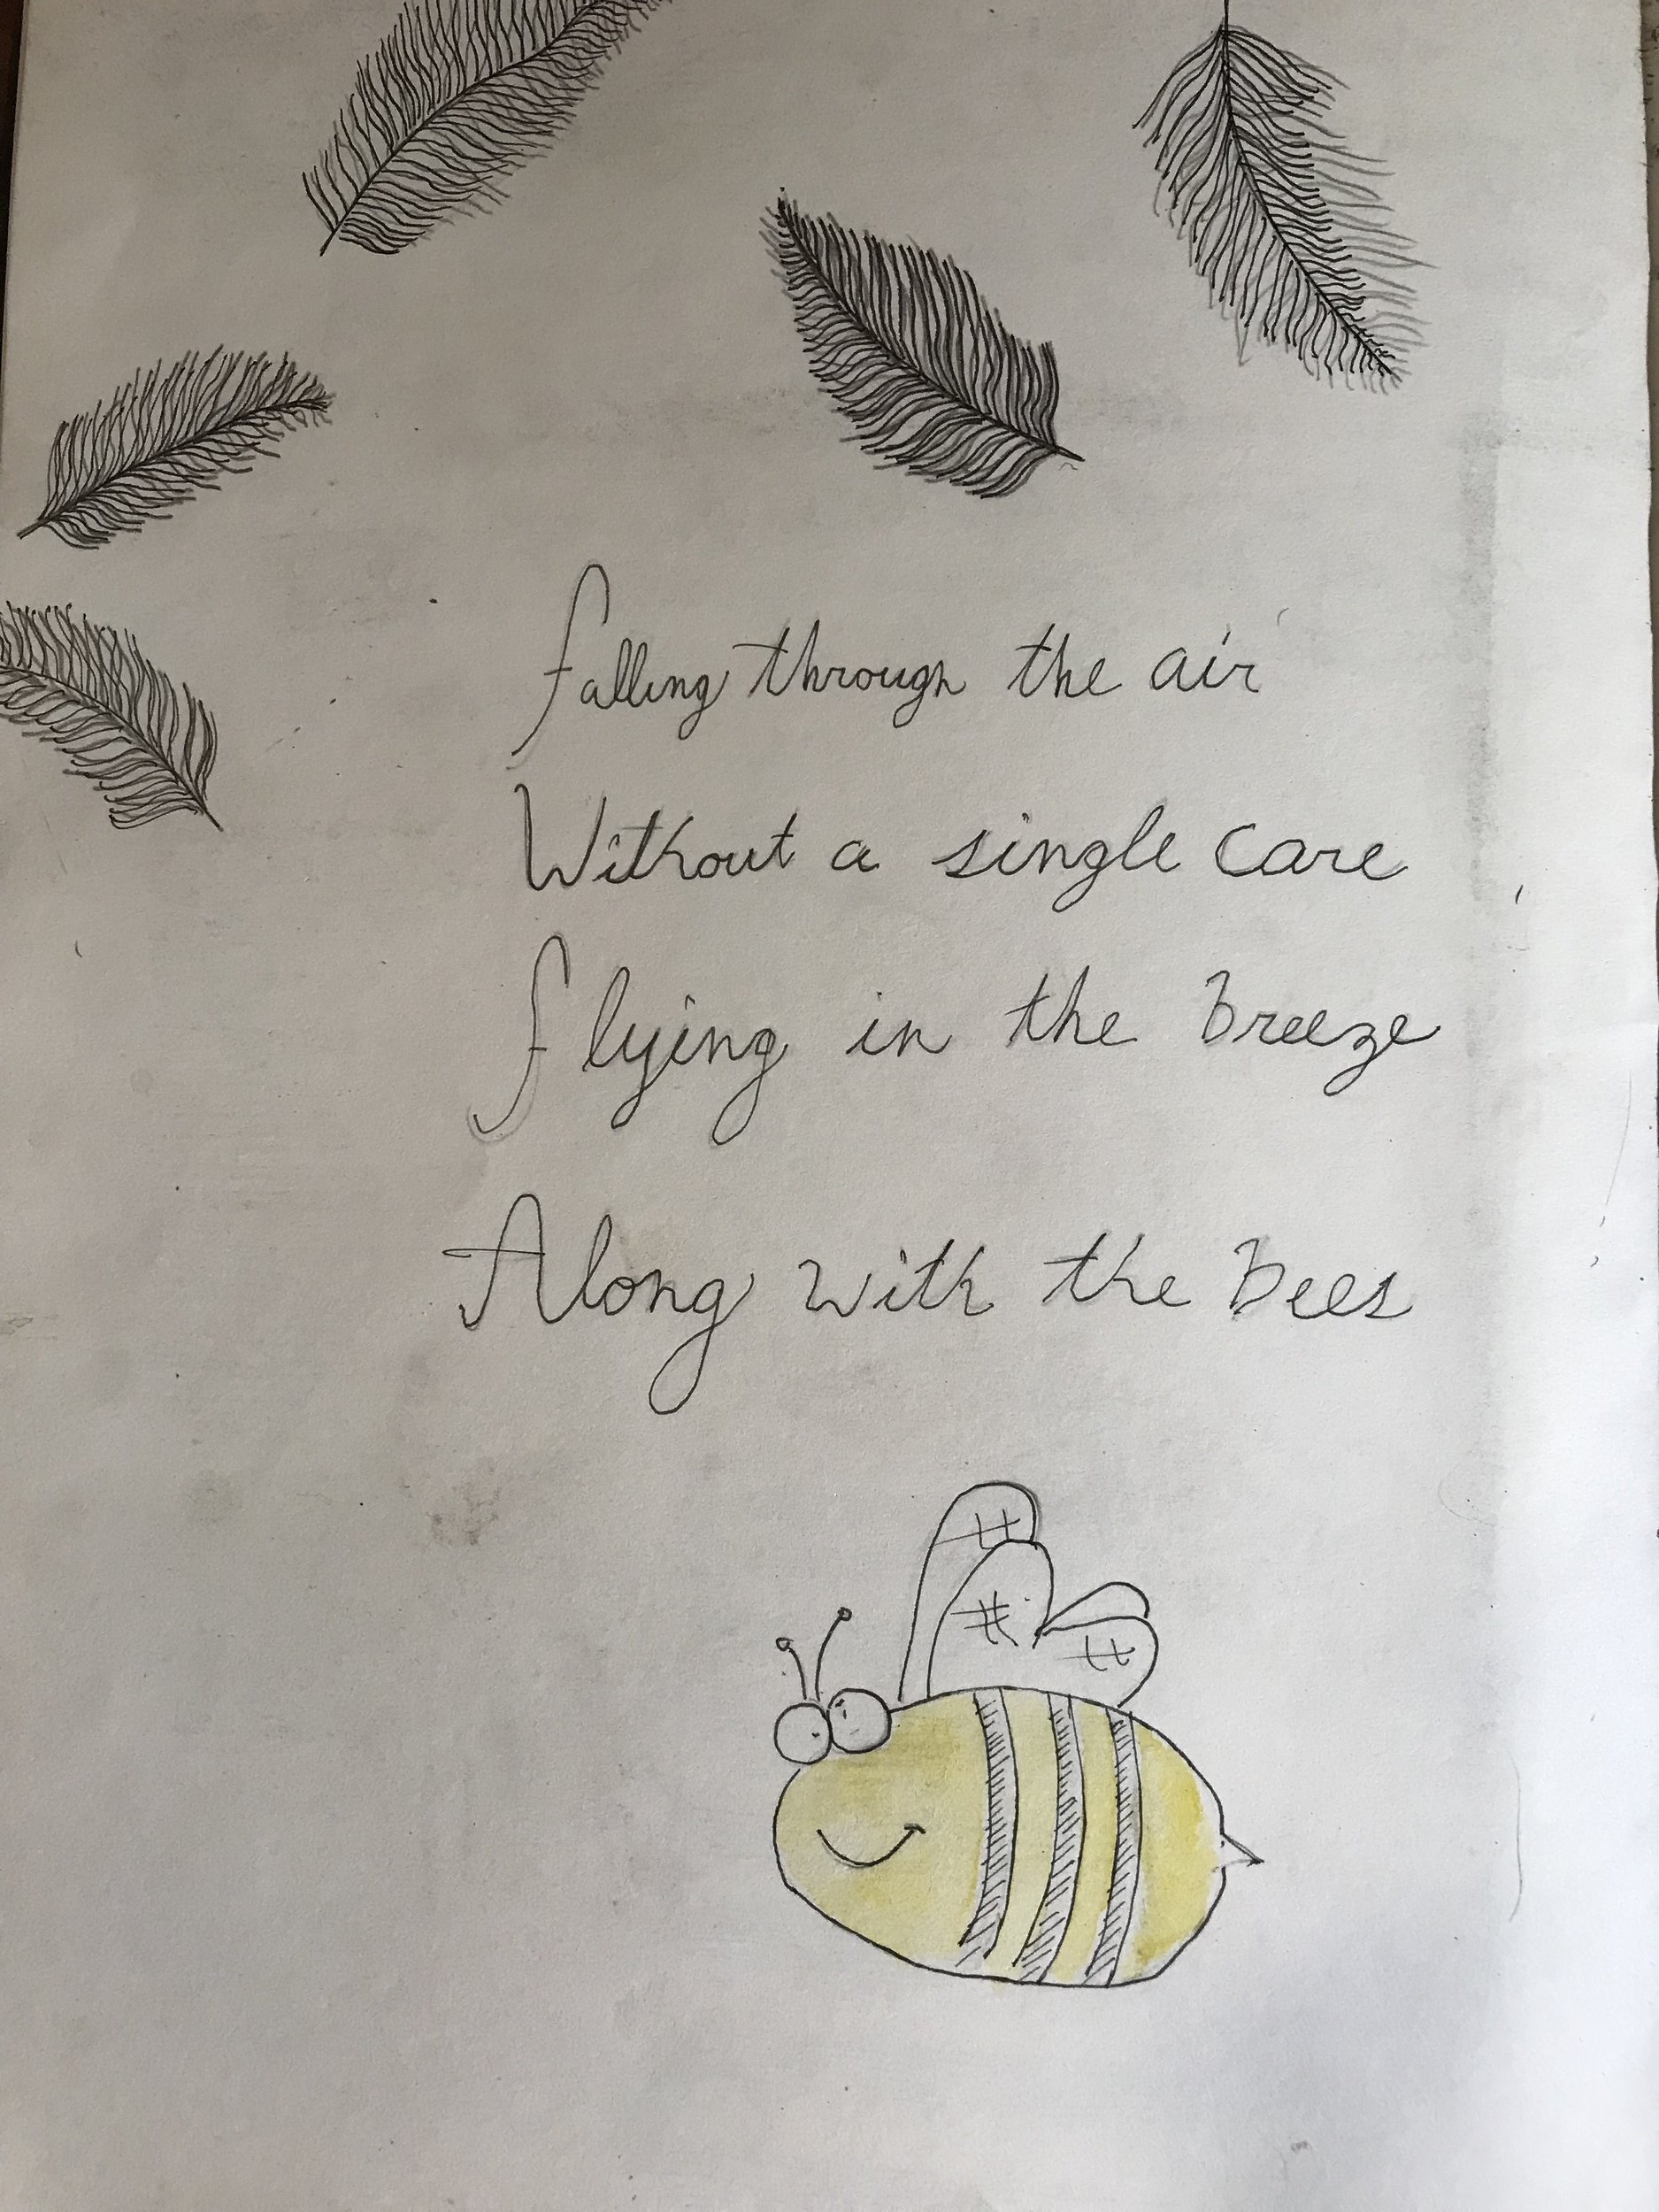 falling through the air
Without a single care
flying in the breeze
Along with the bees